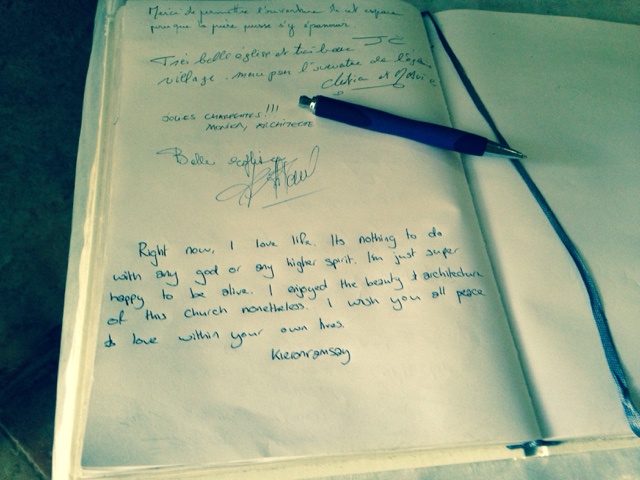 Merci de permettre l'ouverture de cet espace
pour que la prière puisse s'y épanouir.
Très belle église et très beau
village. merci pour l'ouverture de l'église
JOLIES CHARPENTES !!!
MONICA, ARCHITECTE
Belle église
Right now, I love life. Its nothing to do
with any god or any higher spirit. I'm just super
happy to be alive. I enjoyed the beauty & architecture
of this church nonetheless. I wish you all peace
& love within your own lives.
Kieronramsay